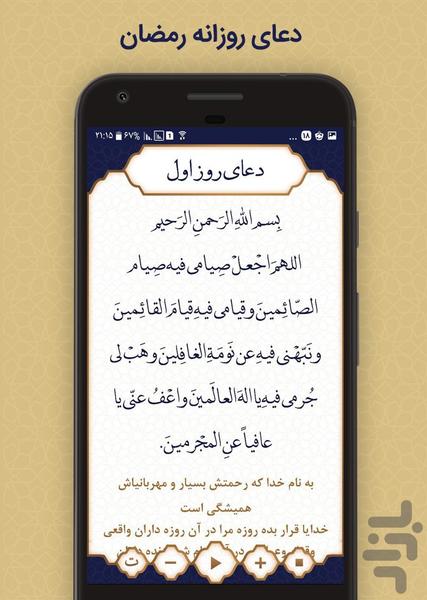 دعای روزانه رمضان
۲۱:۱۵ ۶۷%
... ۱۸
دعای روز اول
بِسمِ اللهِ الرَحمنِ الرَحیمِ
اللهمَ اجْعلْ صِیامی فیه صِیام
الصّائِمینَ و قیامی فیهِ قیامَ القائِمینَ
و نَبّهْنی فیهِ عن نَومَةِ الغافِلینَ وهَبْ لی
جُرمی فیهِ یا الهَ العالَمینَ واعْفُ عنّی یا
عافیاً عنِ المجْرمینَ.
به نام خدا که رحمتش بسیار و مهربانیاش
همیشگی است
خدایا قرار بده روزه مرا در آن روزه داران واقعی
ت − + 
بازار